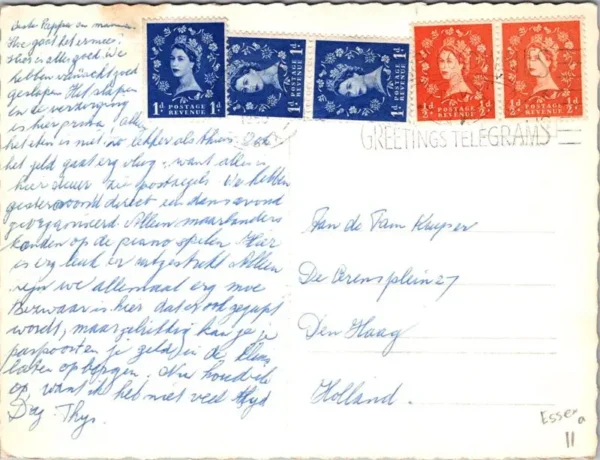 Beste Pappie en mammie.
Hoe gaat het ermee?
Hier is alles goed. We
hebben vannacht goed
geslapen. Het slapen
en de verzorging
is hier prima! Alleen
het eten is niet zo lekker als thuis. Ook
het geld gaat erg vlug, want alles is
hier duur zie postzegels. We hebben
gisteravond direct een dansavond
georganiseerd. Alleen maar
konden op de piano spelen. Hier
is erg leuk er uitgestrekt. Alleen
zijn we allemaal erg moe
Bezwaar is hier dat er ook gegapt
wordt, maar gelukkig kan je je
paspoort en je geld in de
laten opbergen. Nu houd ik
op, want ik heb niet veel tijd
Dag. Thijs.
1d POSTAGE REVENUE 1d
1d POSTAGE REVENUE 1d
1d POSTAGE REVENUE 1d
½d POSTAGE REVENUE ½d
½d POSTAGE REVENUE ½d
GREETINGS TELEGRAMS
Aan de Fam Kuyper
De Eerensplein 27
Den Haag
Holland.
Essex
a
11